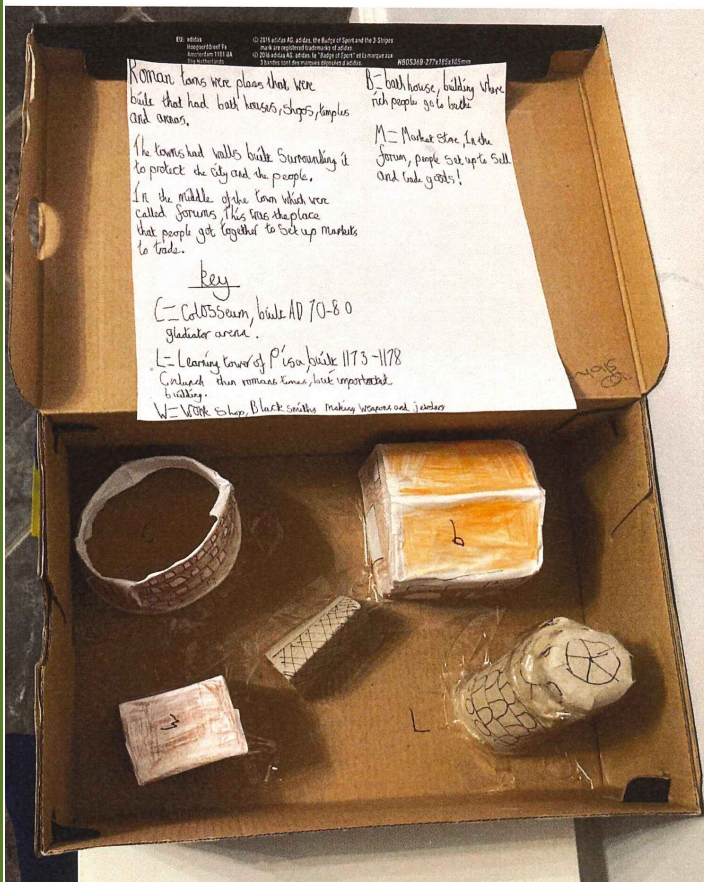 EU: adidas
Hoogoorddreef 9a
Amsterdam 1101-BA
The Netherlands
© 2016 adidas AG. adidas, the Badge of Sport and the 3-Stripes
mark are registered trademarks of adidas.
© 2016 adidas AG. adidas, le "Badge of Sport" et la marque aux
3 bandes sont des marques déposées d'adidas.
Roman towns were plaas that were
built that had bath houses, shops, temples
and arenas.
The towns had walls built Surrounding it
to protect the city and the people.
In the middle of the town which were
called forums, This was the place
that people got together to Set up markets
to trade.
key
C= Colosseum, built AD 70-80
gladiator arena.
L= Learning tower of Pisa, built 1173-1178
thin romans times, but important
building.
W= Work Shop, Black smiths making weapons and jewlery
B= bath house, building where
rich people go to bathe
M= Market Store, In the
forum, people set up to Sell
and trade goods!
C
b
W
L